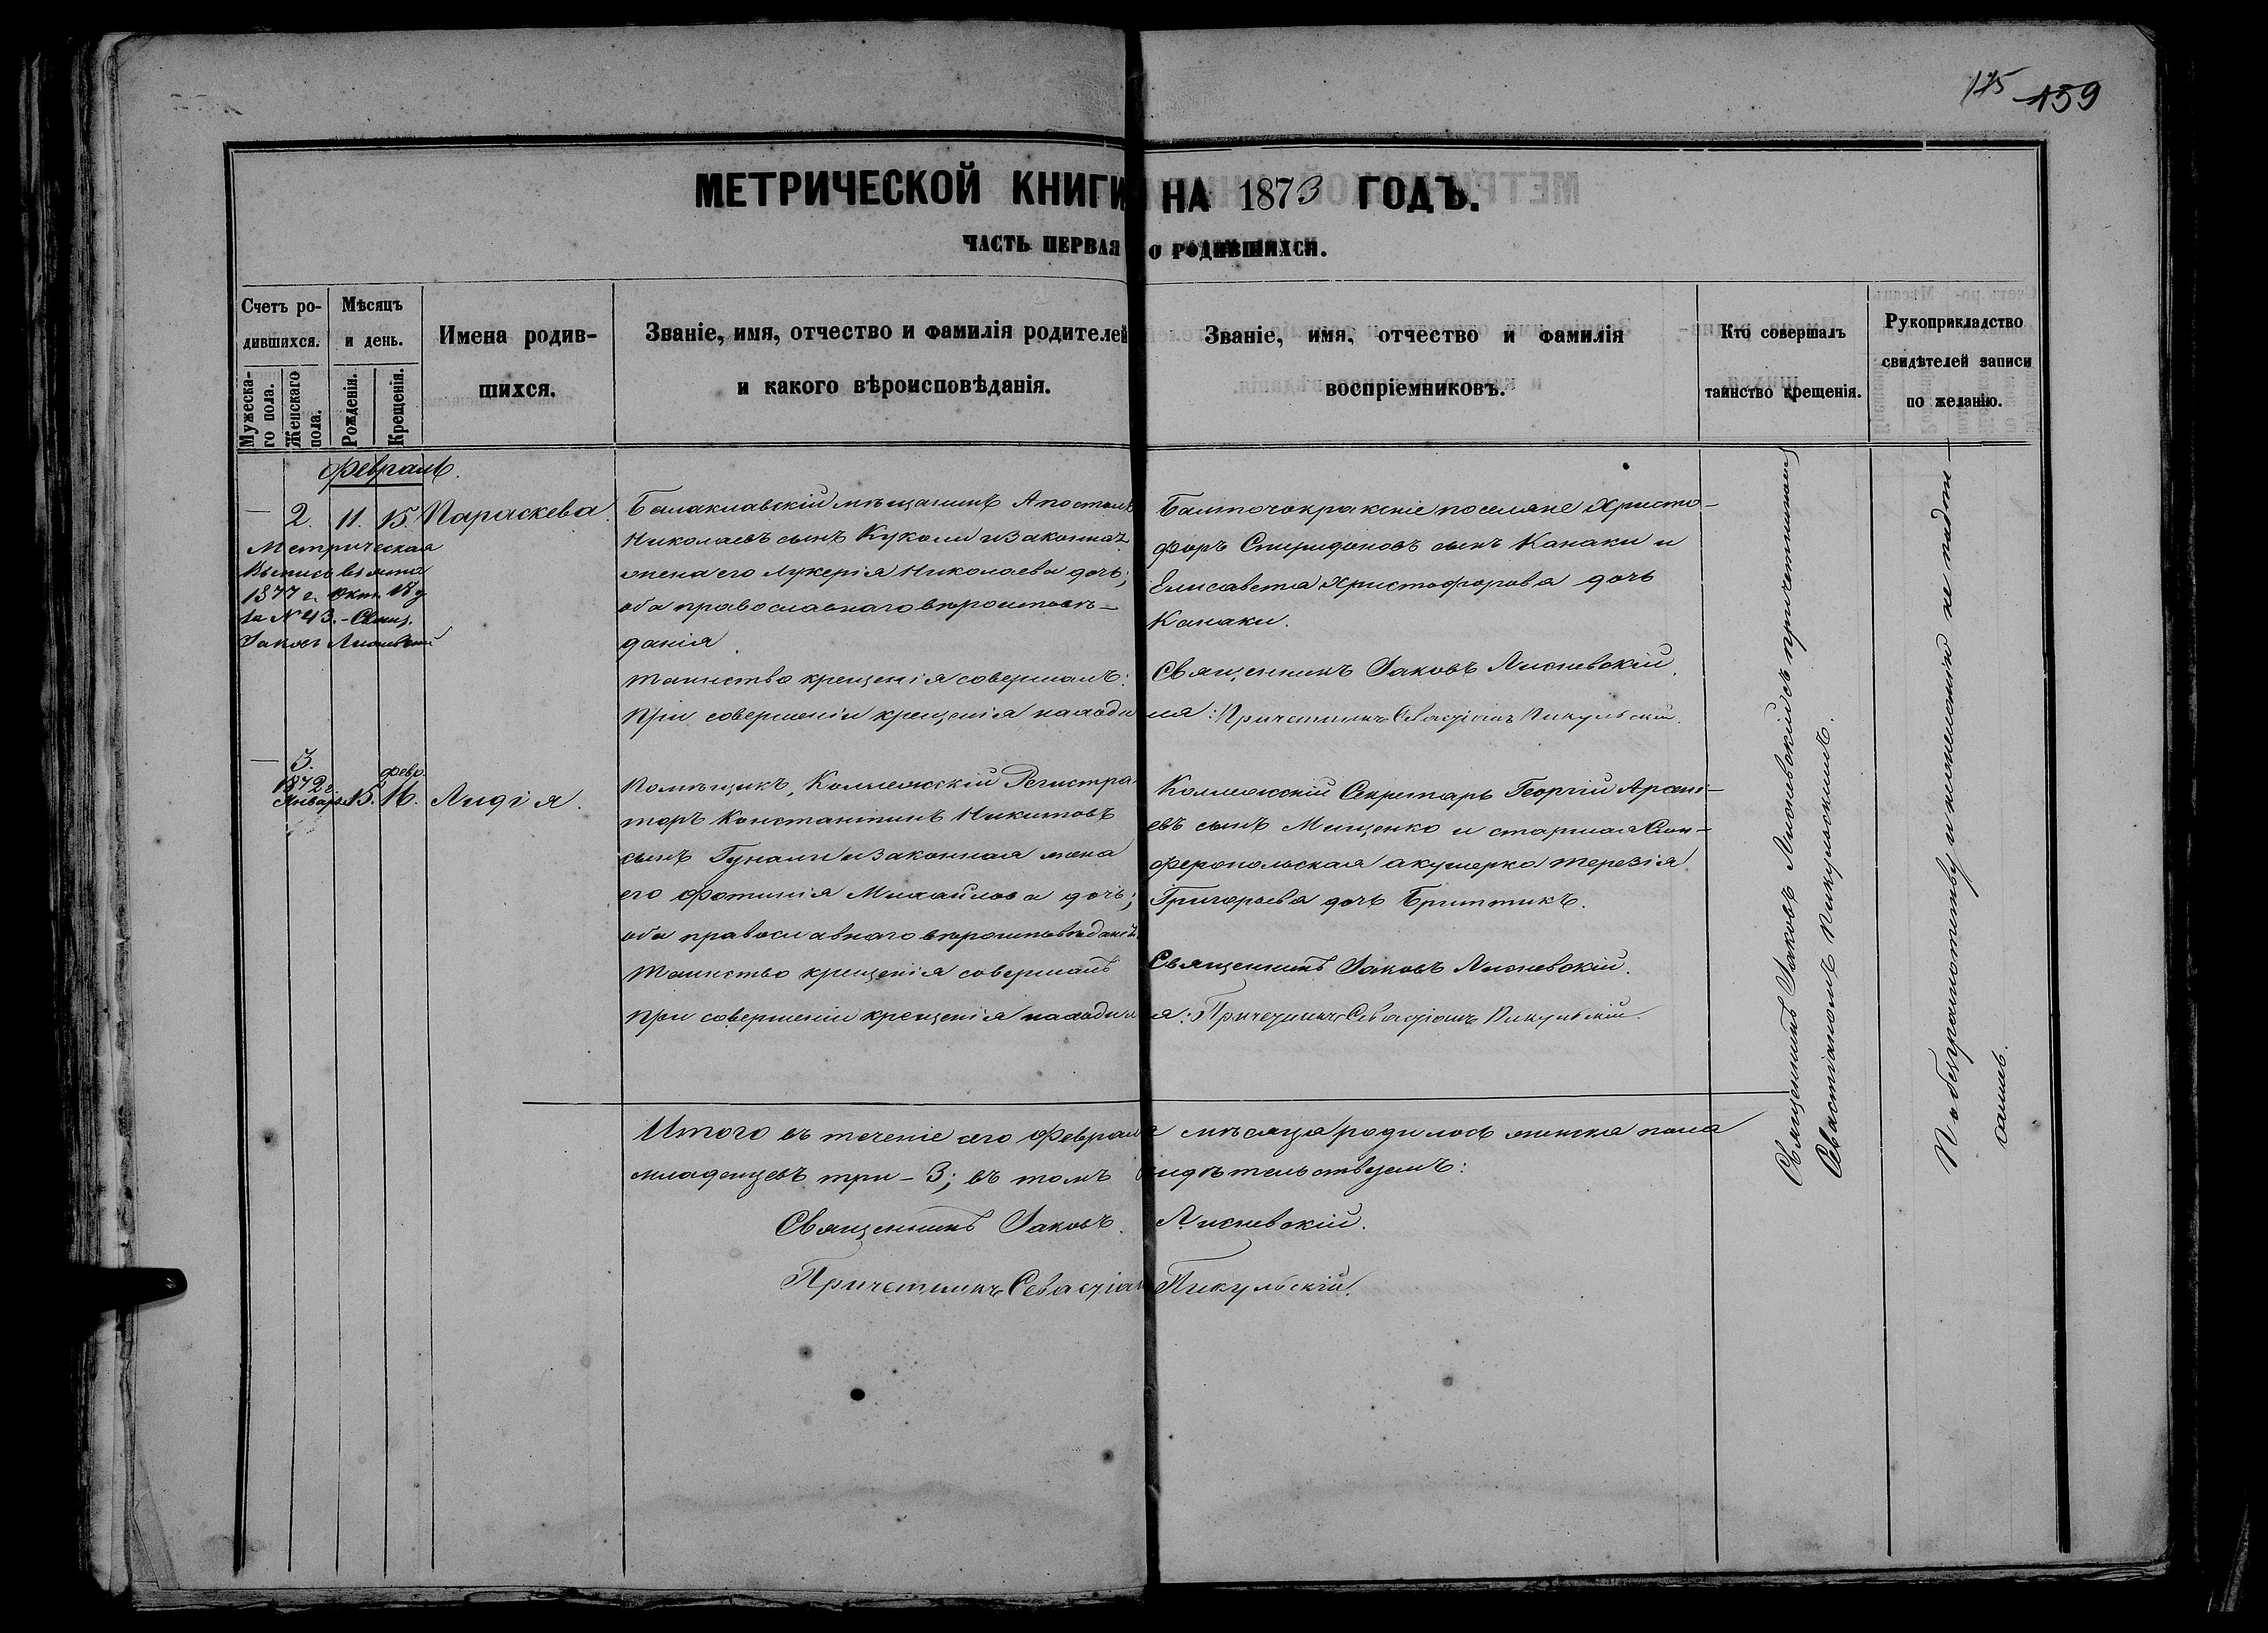 175 159
МЕТРИЧЕСКОЙ КНИГИ НА 1873 ГОДЪ.
ЧАСТЬ ПЕРВАЯ О РОДИВШИХСЯ.
Счетъ ро-
дившихся.
Мужеска-
го пола.
Женскаго
пола.
Мѣсяцъ
и день.
Рожденія.
Крещенія.
Имена родив-
шихся.
Званіе, имя, отчество и фамилія родителей
и какого вѣроисповѣданія.
Званіе, имя, отчество и фамилія
воспріемниковъ.
Кто совершалъ
таинство крещенія.
Рукоприкладство
свидѣтелей записи
по желанію.
Февраль.
— 2. 11. 15. Параскева.
Метрическая
Выпись выдана
1877 г. Окт. 18 д
за № 43. - Свящ.
Іаковъ Лисневскій
Балаклавскій мѣщанинъ Апостолъ
Николаевъ сынъ Куколи и законная
жена его Лукерія Николаева дочь;
оба православнаго вѣроисповѣ-
данія.
Таинство крещенія совершалъ:
При совершеніи крещенія находи
Христо-
форъ Спиридоновъ сынъ Канаки и
Елисавета Христофорова дочь
Канаки.
Священникъ Іаковъ Лисневскій.
лся: Причетникъ Севастіанъ Пикульскій.
— 3.
1872 г.
Января 15. Февр. 16. Лидія.
Помѣщикъ, Коллежскій Регистра-
торъ Константинъ Никитовъ
сынъ Гунали и законная жена
его Фотинія Михайлова дочь;
оба православнаго вѣроисповѣданія.
Таинство крещенія совершалъ
При совершеніи крещенія находил
Коллежскій Секретарь Георгій Арсень-
евъ сынъ Мищенко и старшая Сим-
феропольская акушерка Терезія
Григорьева дочь Бриттикъ.
Священникъ Іаковъ Лисневскій.
я: Причетникъ Севастіанъ Пикульскій.
Итого въ теченіе сего Февраля мѣсяца родилось женска пола
младенцевъ три - 3; въ томъ свидѣтельствуемъ:
Священникъ Іаковъ Лисневскій.
Причетникъ Севастіанъ Пикульскій.
Священникъ Іаковъ Лисневскій съ причетникомъ
Севастіаномъ Пикульскимъ.
По безграмотству и неимѣнію не подпи-
сались.